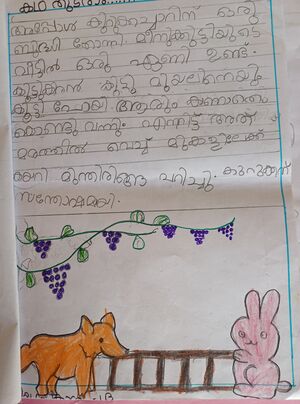 കഥ തുടരാം......
അപ്പോൾ കുറുക്കച്ചാരിന് ഒരു
ബുദ്ധി തോന്നി. മീനുക്കുട്ടിയുടെ
വീട്ടിൽ ഒരു ഏണി ഉണ്ട്.
കൂട്ടുകാരൻ കുട്ടു മുയലിനെയും
കൂട്ടി പോയി ആരും കാണാതെ
കൊണ്ടു വന്നു. എന്നിട്ട് അത്
മരത്തിൽ വെച്ച് മുകളിലേക്ക്
കയറി മുന്തിരിങ്ങ പറിച്ചു. കുറുക്കന്
സന്തോഷമായി.